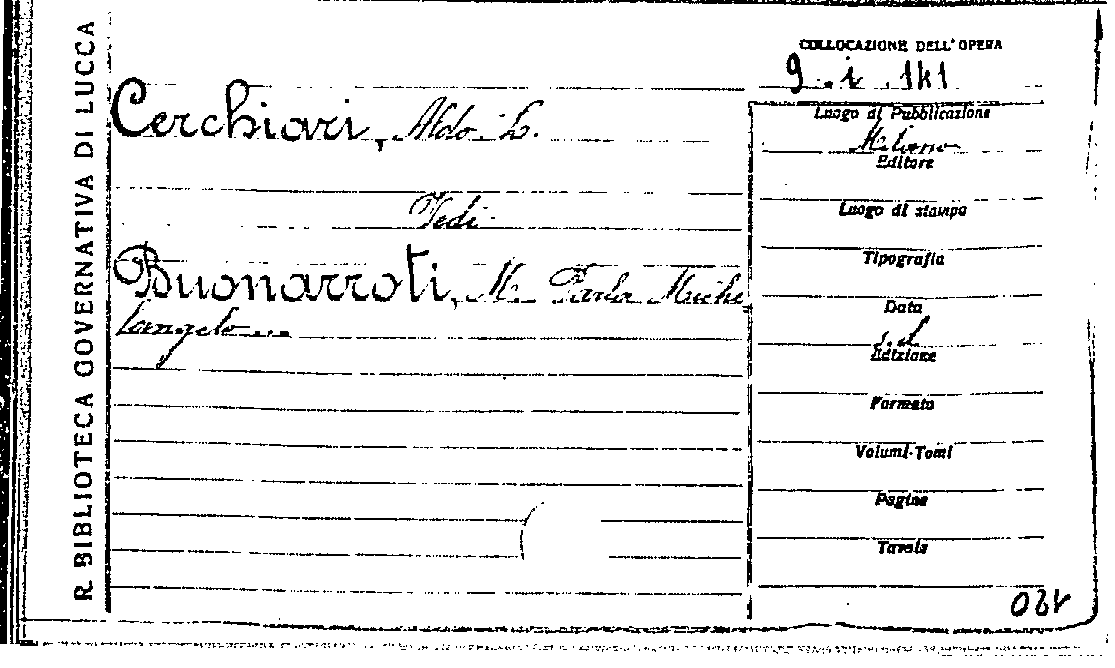 R. BIBLIOTECA GOVERNATIVA DI LUCCA
COLLOCAZIONE DELL'OPERA
9. i. 141
Cerchiari, Aldo L.
Vedi
Buonarroti, M. Parla Miche
langelo...
Luogo di Pubblicazione
Milano
Editore
Luogo di stampa
Tipografia
Data
s.d.
Edizione
Formato
Volumi-Tomi
Pagine
Tavole